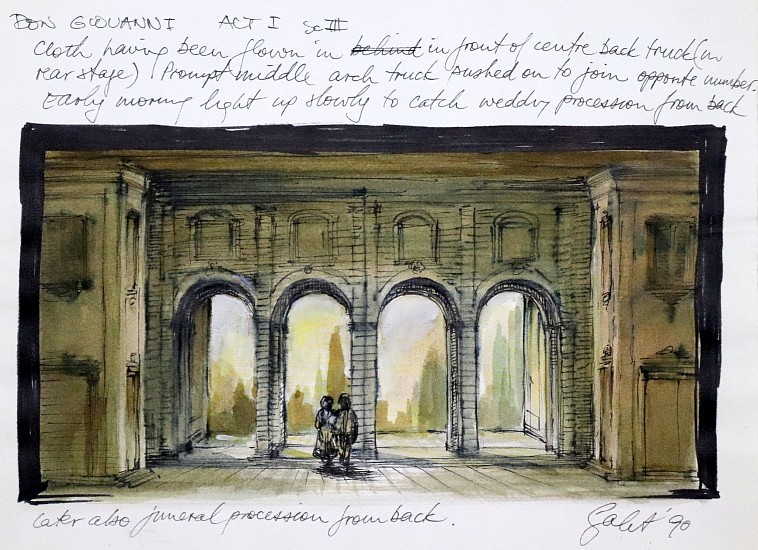 DON GIOVANNI ACT I Sc III
Cloth having been flown in behind in front of centre back truck (in
rear stage) Prompt middle arch truck pushed on to join opposite number.
Early morning light up slowly to catch wedding procession from back
Later also funeral procession from back.
'90